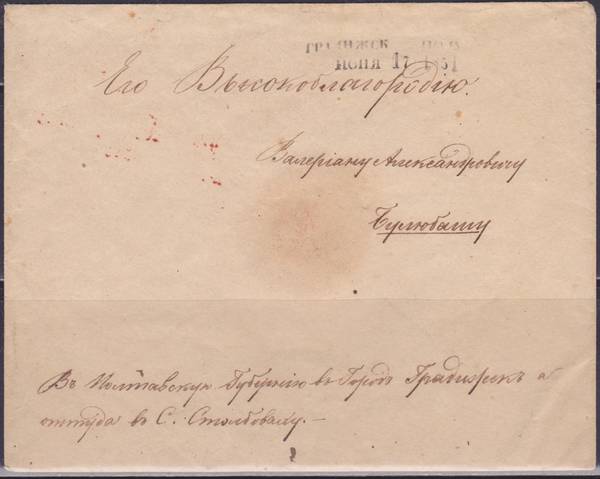 ГРАДИЖСК ПОЛ
ИЮНЯ 17 1851
Его Высокоблагородію.
Валеріану Александровичу
Булюбашу
Въ Полтавскую Губернію въ Городъ Градижскъ а
оттуда въ С. Столбоваху. —